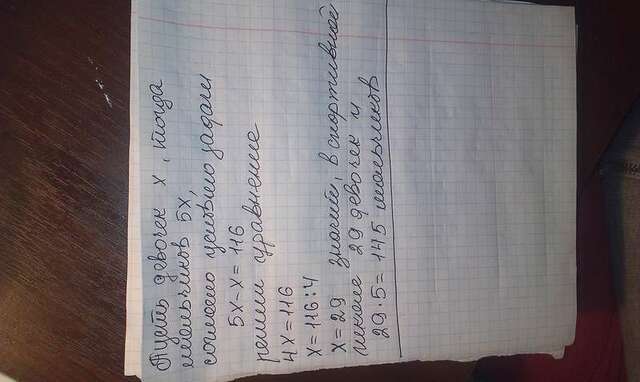 Пусть девочек x, тогда
мальчиков 5x,
согласно условию задачи
5x-x=116
решим уравнение
4x=116
x=116:4
x=29 значит, в спортивной
школе 29 девочек и
29·5=145 мальчиков